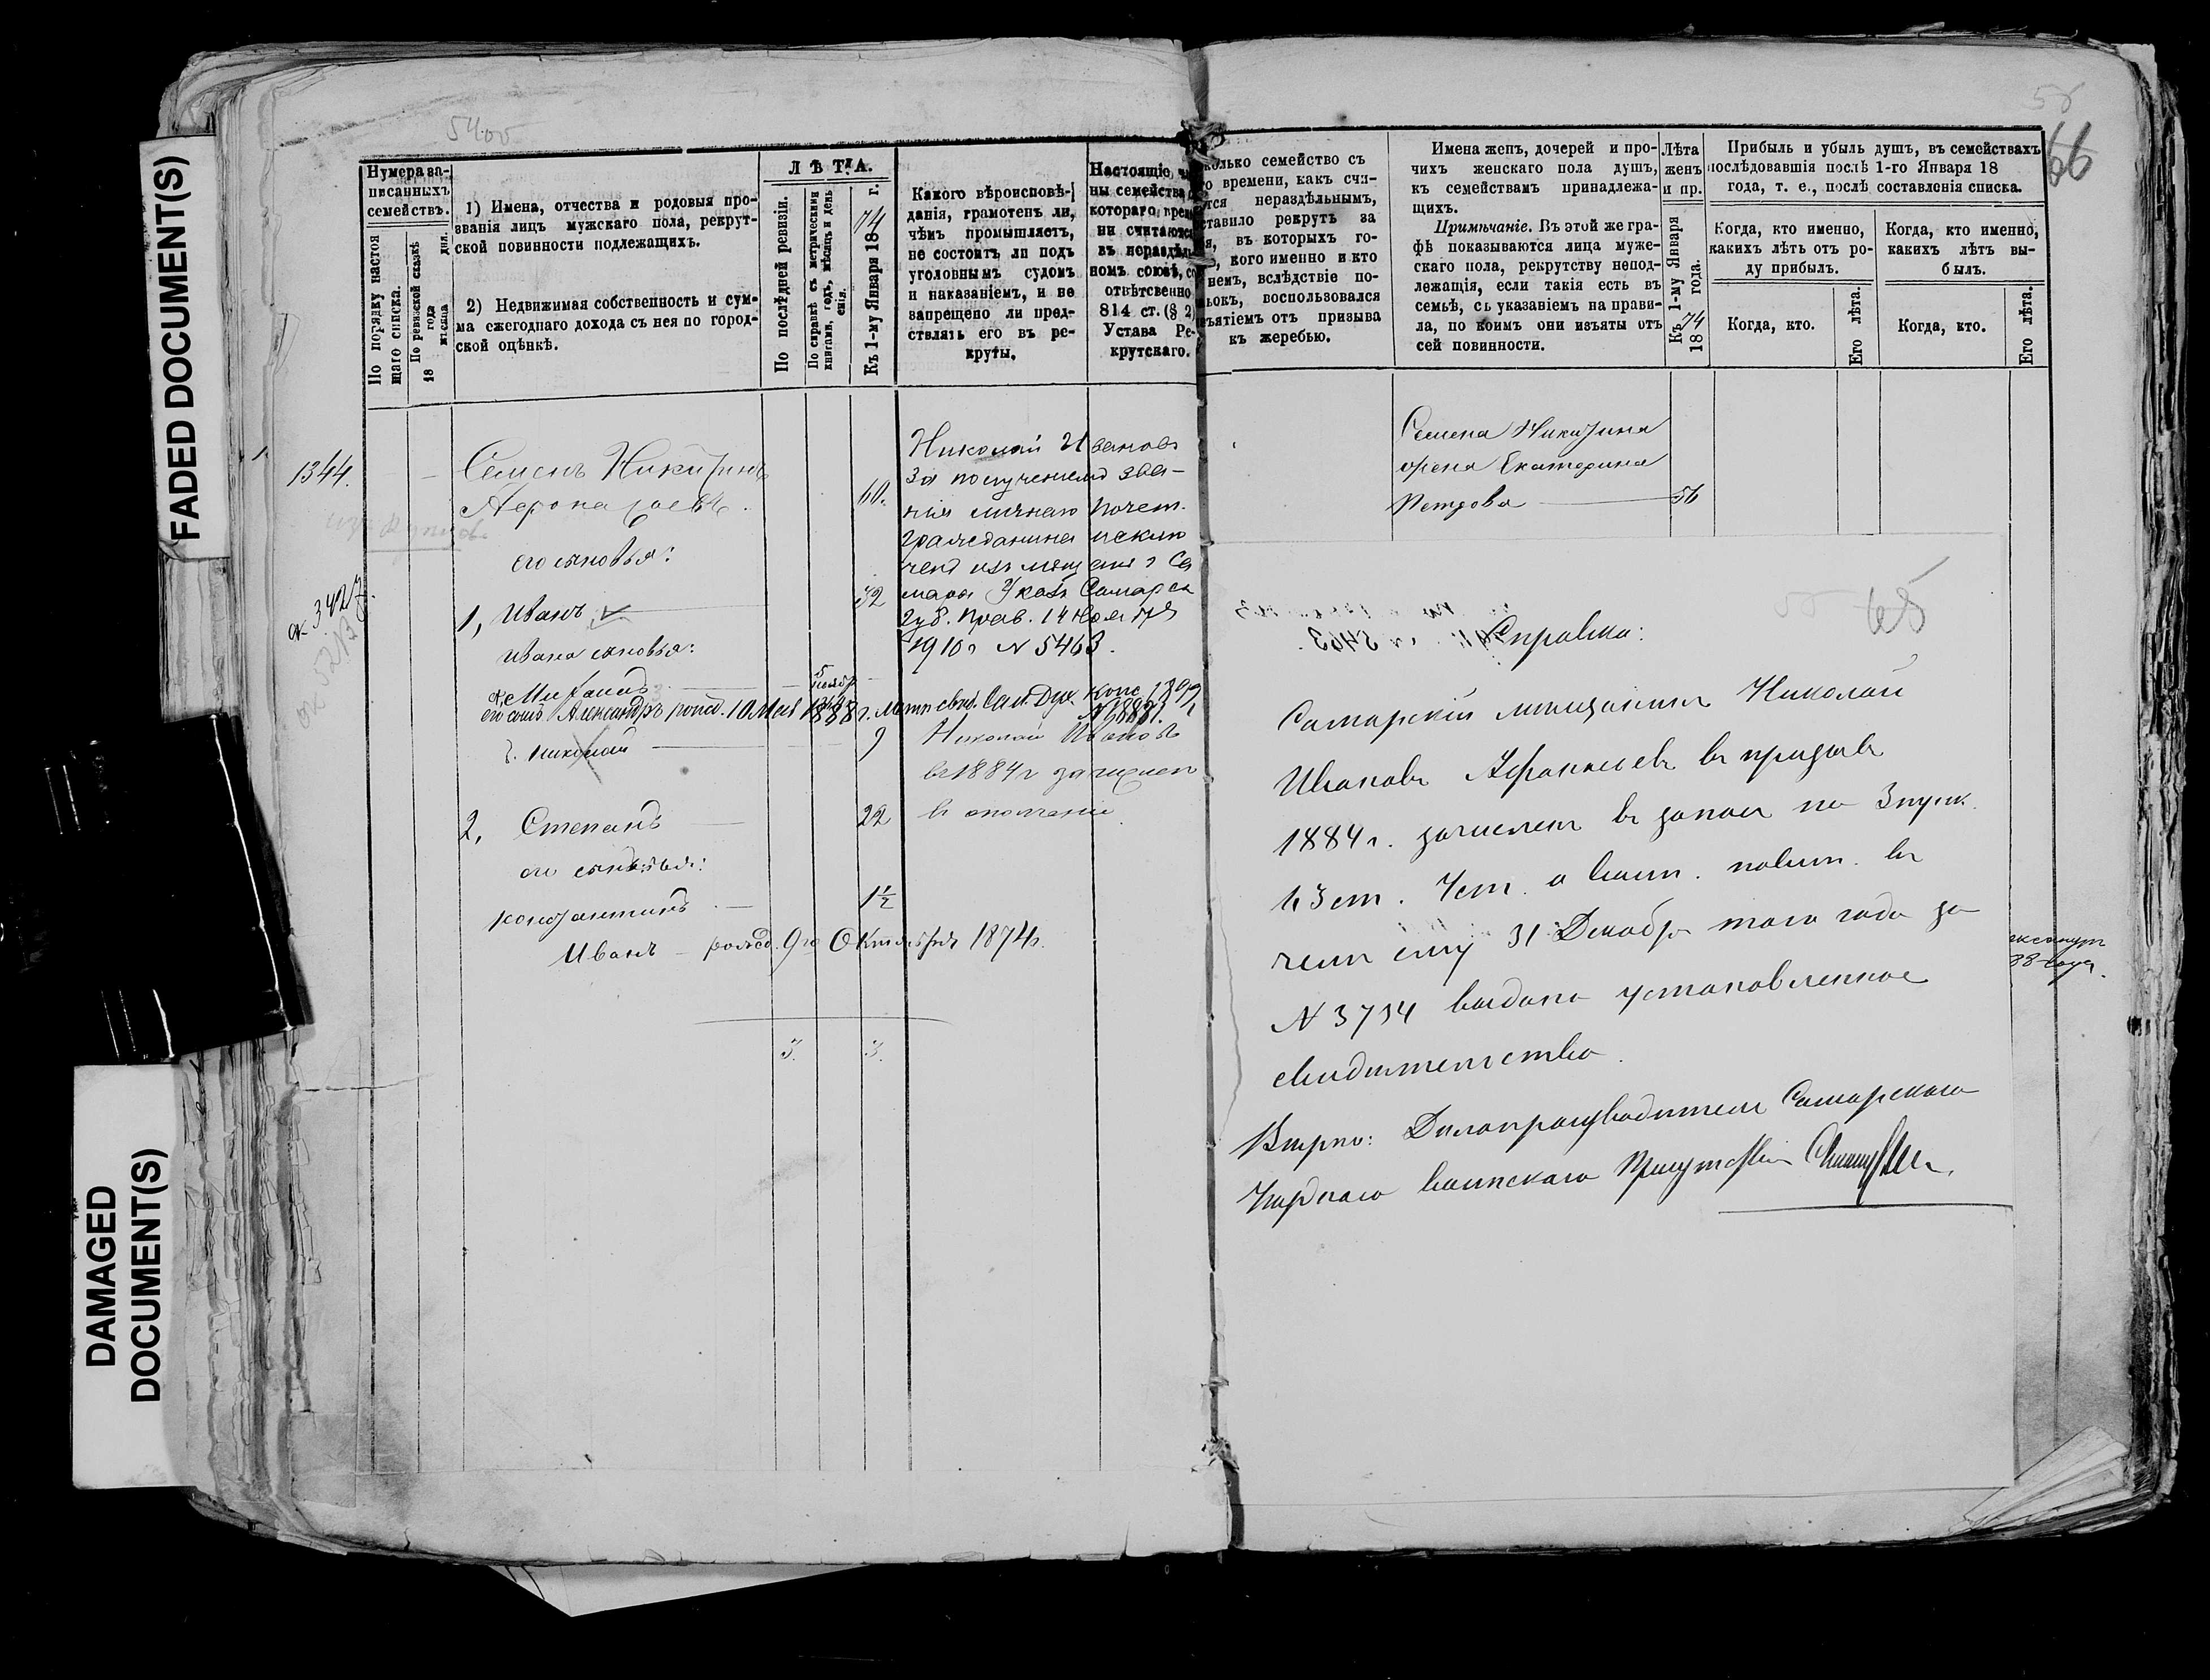 FADED DOCUMENT(S)
DAMAGED
DOCUMENT(S)
5400
58
66
Нумера за-
писанныхъ
семействъ.
По порядку настоя
щаго списка.
По ревизской сказкѣ
18 года
мѣсяца дня.
1) Имена, отчества и родовыя про-
званія лицъ мужскаго пола, рекрут-
ской повинности подлежащихъ.
2) Недвижимая собственность и сум-
ма ежегоднаго дохода съ нея по город-
ской оцѣнкѣ.
ЛѢТА.
По послѣдней ревизіи.
По справкѣ съ метрическими
книгами, годъ, мѣсяцъ и день
енія.
Къ 1-му Января 1874 г.
Какого вѣроисповѣ-
данія, грамотенъ ли,
чѣмъ промышляетъ,
не состоитъ ли подъ
уголовнымъ судомъ
и наказаніемъ, и не
запрещено ли пред-
ствлять его въ ре-
круты.
Настоящіе
ны семейства
котораго
ни считаются
въ нераздѣль-
номъ союзѣ, со
отвѣтсвенно
814 ст. (§ 2)
Устава Ре-
крутскаго.
колько семейство съ
о времени, какъ счи-
тся нераздѣльнымъ,
ставило рекрутъ за
я, въ которыхъ го-
, кого именно и кто
немъ, вслѣдствіе по-
ьокъ, воспользовался
зъятіемъ отъ призыва
къ жеребью.
Имена женъ, дочерей и про-
чихъ женскаго пола душъ,
къ семействамъ принадлежа-
щихъ.
Примѣчаніе. Въ этой же гра-
фѣ показываются лица муже-
скаго пола, рекрутству непод-
лежащія, если такія есть въ
семьѣ, съ указаніемъ на прави-
ла, по коимъ они изъяты отъ
сей повинности.
Лѣта
женъ
и пр.
Къ 1-му Января
1874 года.
Прибыль и убыль душъ, въ семействахъ
послѣдовавшія послѣ 1-го Января 18
года, т. е., послѣ составленія списка.
Когда, кто именно,
какихъ лѣтъ отъ ро-
ду прибылъ.
Когда, кто именно,
какихъ лѣтъ вы-
былъ.
Когда, кто.
Его лѣта.
Когда, кто.
Его лѣта.
1344.
Семенъ Никитинъ
Афонасьевъ.
60.
его сыновья:
1, Иванъ
32
Ивана сыновья:
а, Михаилъ
его сынъ Александръ рожд. 10 Мая 1888 г. Метр. свид. Сам. Дух. Конс. 1899
N 18881.
Николай
9
2, Степанъ
22
его сыновья:
Константинъ
1½
Иванъ – рожд. 9го Октября 1874 г.
3. 3.
Николай Ивановъ
за получением зва-
нія личнаго почет.
гражданина исклю
чен изъ мещанъ г Са
мары Указъ Самарск
Губ. Прав. 14 Ноября
1910 г N 5463.
Николай Ивановъ
въ 1884 г зачислен
въ ополченіе.
Семена Никитина
жена Екатерина
Петрова
56
65
Справка:
Самарскій мѣщанинъ Николай
Ивановъ Афанасьевъ въ призывъ
1884 г. зачисленъ въ запас по 3 пунк.
45 ст. Уст. о воин. повин. въ
чемъ ему 31 Декабря того года за
N 3794 выдано установленное
свидѣтельство.
Вѣрно: Дѣлопроизводитель Самарскаго
Уѣзднаго Воинскаго Присутствія